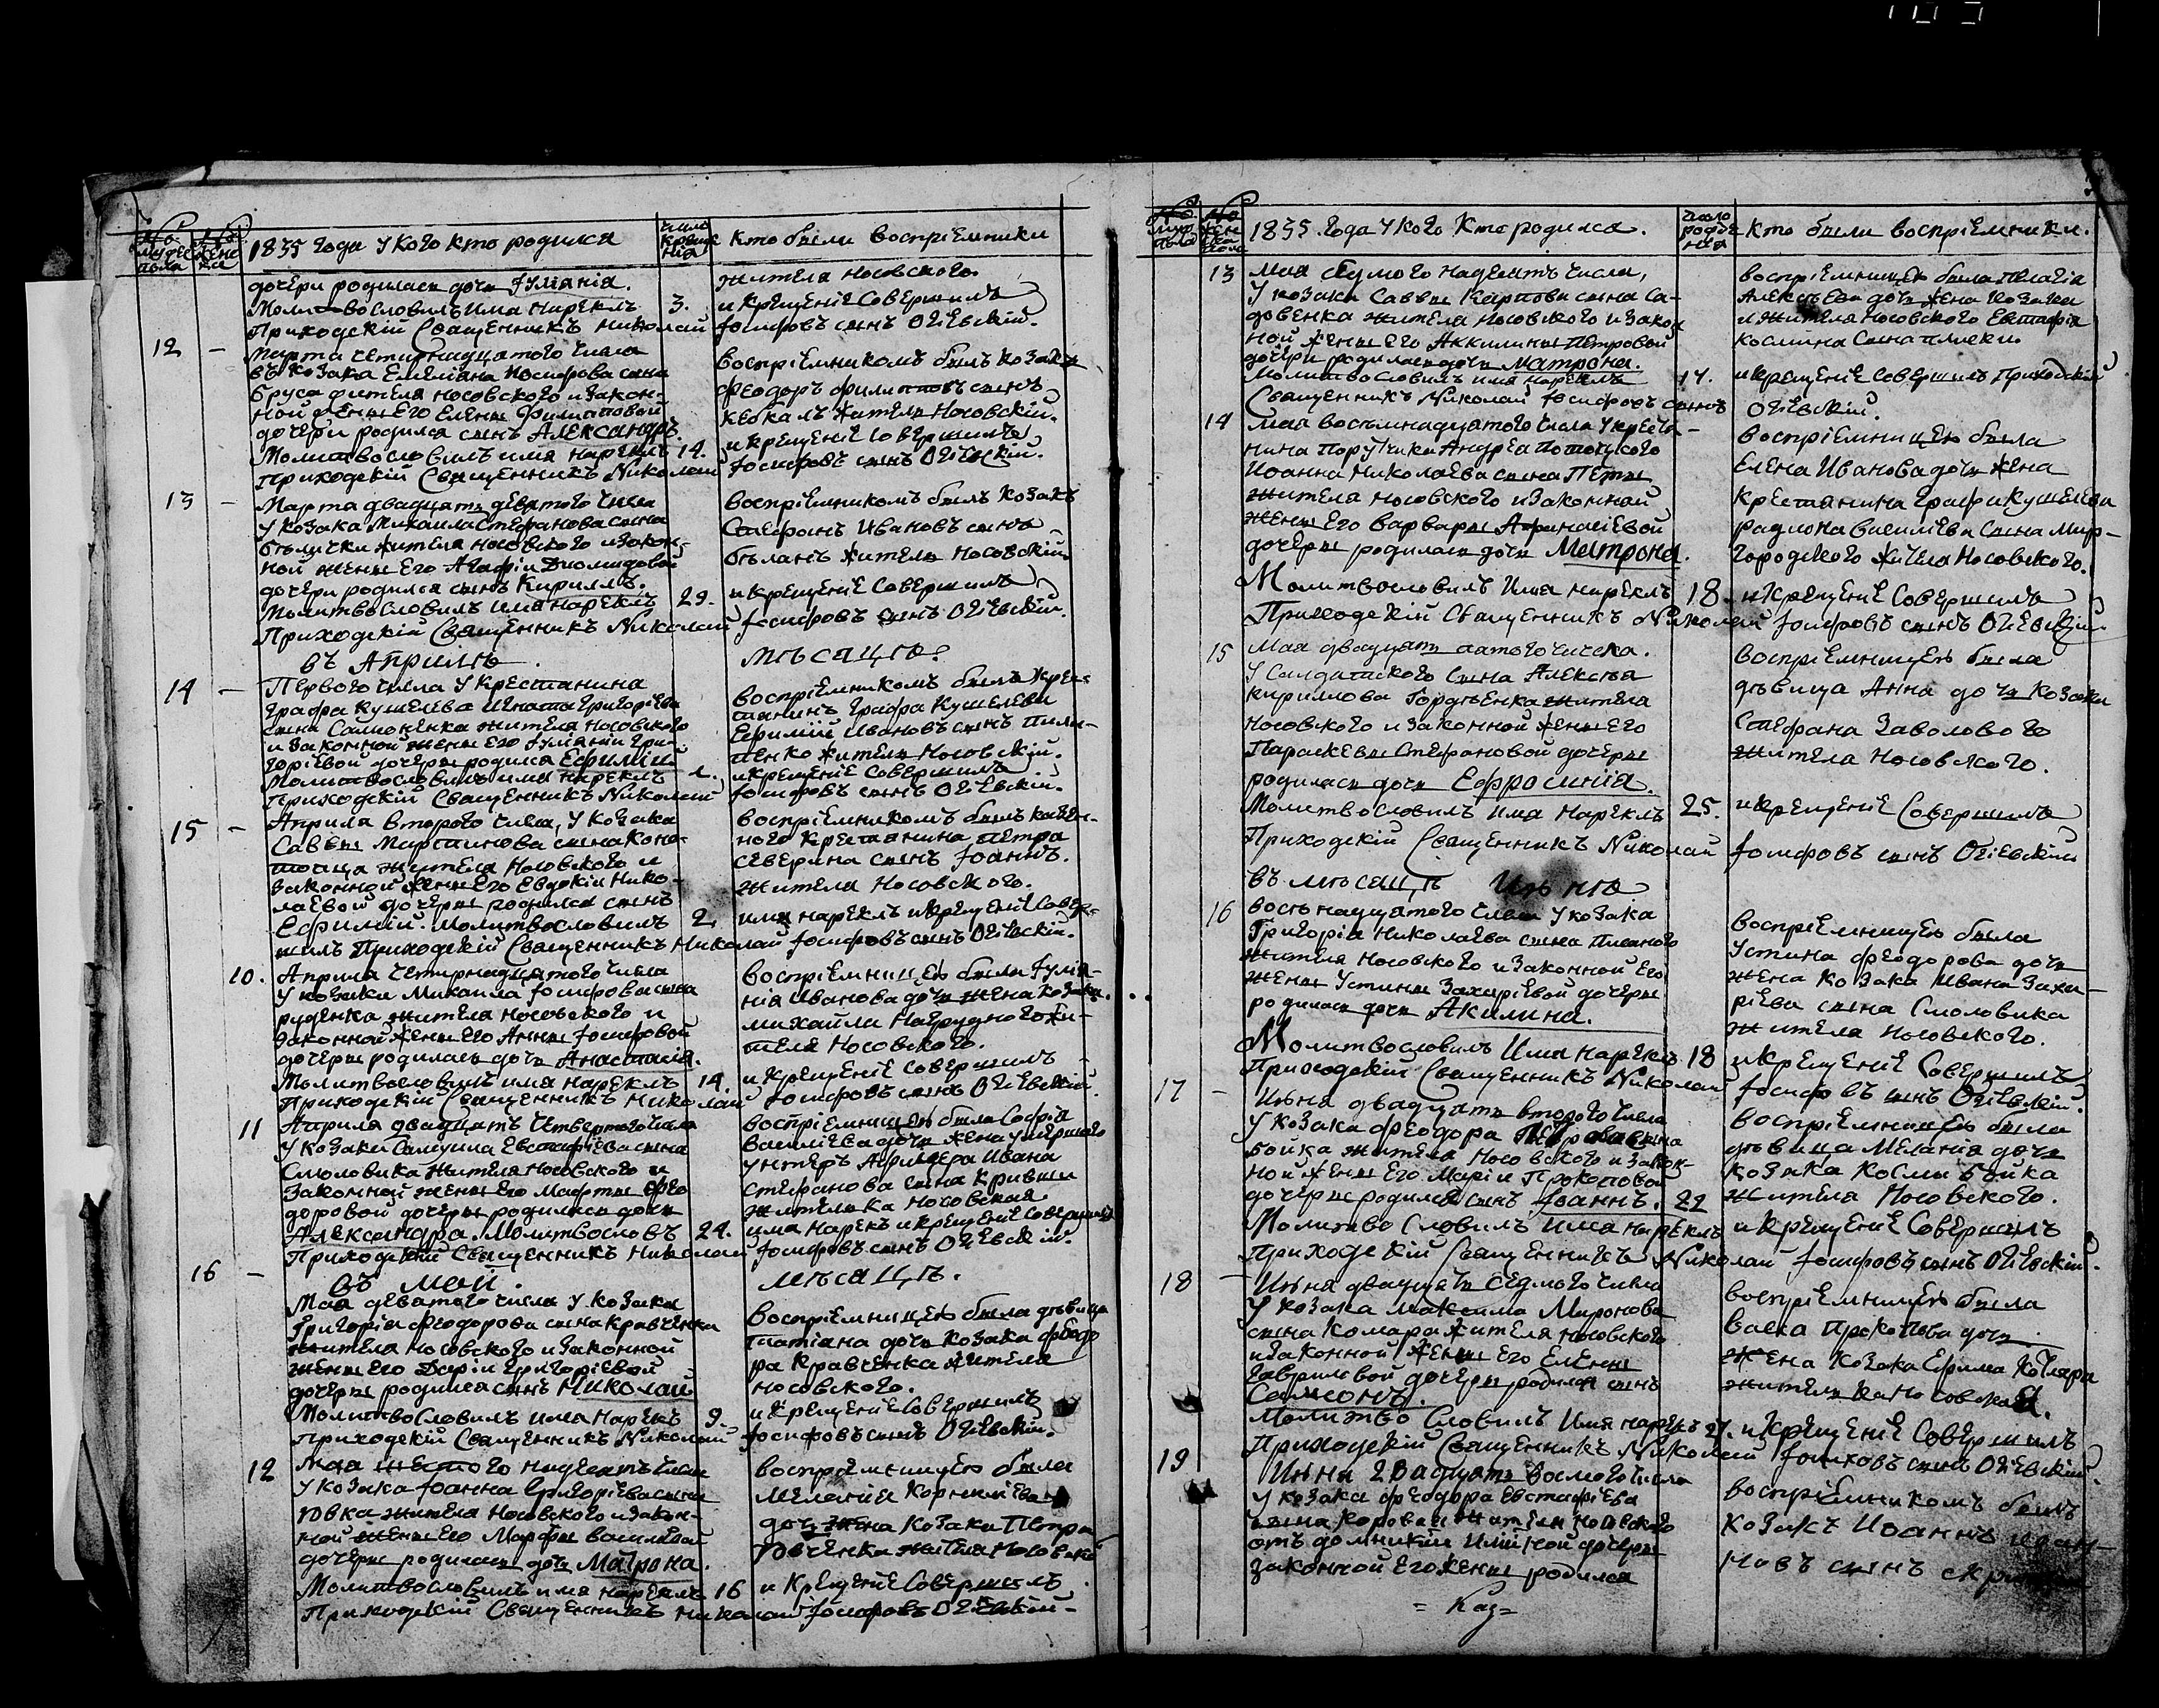 № мужеска пола
№ женска
1835 года у кого кто родился
число крещенія
кто были воспріемники
дочери родилась дочь Іуліанія.
Молитвословилъ имя нареклъ 3.
Приходскій Священникъ Николай
жителя Носовского.
и крещеніе Совершилъ
Іосифовъ сынъ Огіевскій.
12 –
Марта четырнадцатого числа
въ козака Емеліана Иосифова сына
Бруса жителя Носовского и закон-
ной жены его Елены Филипповой
дочери родился сынъ Александръ.
Молитвословилъ имя нареклъ 14.
Приходскій Священникъ Николай
воспріемникомъ былъ козакъ
Феодоръ Филипповъ сынъ
жителъ Носовскій.
и крещеніе Совершилъ
Іосифовъ сынъ Огіевскій.
13 –
Марта двадцать девятого числа
у козака Михаила Стефанова сына
жителя Носовского и закон-
ной жены его Агафіи Диомидовой
дочери родился сынъ Кириллъ.
Молитвословилъ имя нареклъ 29.
Приходскій Священникъ Николай
воспріемникомъ былъ козакъ
Стефанъ Ивановъ сынъ
Беланъ житель Носовскій.
и крещеніе Совершилъ
Іосифовъ сынъ Огіевскій.
въ Априлѣ
мѣсацѣ.
14 –
Первого числа у крестанина
графа Кушелева Игната Григоріева
сына Самоненка жителя Носовского
и законной жены его Іуліаніи Гри-
горіевой дочеры родился Ефимій
Молитвословилъ имя нареклъ 1.
Приходскій Священникъ Николай
воспріемникомъ былъ крес-
танинъ графа Кушелева
Ефимій Ивановъ сынъ Пили-
пенко житель Носовскій.
и крещеніе Совершилъ
Іосифовъ сынъ Огіевскій.
15 –
Априля второго числа, у козака
Саввы Мартинова сына Коно-
топца жителя Носовского и
законной жены его Евдокіи Нико-
лаевой дочеры родился сынъ
Ефимій. Молитвословилъ 2.
шилъ Приходскій Священникъ Николай
воспріемникомъ былъ казен-
ного крестанина Петра
Северина сынъ Іоаннъ.
жителя Носовского.
имя нареклъ и крещеніе Совер-
Іосифовъ сынъ Огіевскій.
10.
Априля четырнадцатого числа
у козака Михаила Іосифова сына
Руденка жителя Носовского и
законной жены его Анны Іосифовой
дочеры родилась дочь Анастасія.
Молитвословилъ имя нареклъ 14.
Приходскій Священникъ Николай
воспріемницею была Іуліа-
нія Иванова дочь жена козака
Михайла Нагрудного жи-
теля Носовского.
и крещеніе Совершилъ
Іосифовъ сынъ Огіевскій.
11
Априля двадцать четвертого числа
у козака Самуила Евстафіева сына
Смоловика жителя Носовского и
законной жены его Марфы Фео-
доровой дочеры родилась дочь
Александра. Молитвословъ 24.
Приходскій Священникъ Николай
воспріемницею была Софія
Василіева дочь жена умершого
унтеръ Афицера Ивана
Стефанова сына Кривши
жителька Носовская
имя нарекъ и крещеніе Совершилъ
Іосифовъ сынъ Огіевскій.
въ Маи.
мѣсацѣ.
16 –
Мая девятого числа у козака
Григорія Феодорова сына Кравченка
жителя Носовского и законной
жены его Даріи Григоріевой
дочеры родился сынъ Николай
Молитвословилъ имя нарекъ 9.
Приходскій Священникъ Николай
воспріемницею была дѣвица
Татіана дочь козака Феодо
ра Кравченка жителя
Носовского.
и крещеніе Совершилъ
Іосифовъ сынъ Огіевскій.
12
Мая шестого надцеать числа
у козака Іоанна Григоріева сына
Вовка жителя Носовского и закон-
ной жены его Марфы Василіевой
дочеры родилась дочь Матрона.
Молитвословилъ имя нареклъ 16
Приходскій Священникъ Николай
воспріемницею была
Меланія Корниліева
дочь жена козака Петра
Вовченка жителя Носовского
и крещеніе Совершилъ
Іосифовъ Огіевскій.
№ муж пола
№ женска пола
1835 года у кого кто родился.
число рождения
кто были воспріемники.
13
Мая седмого надцеать числа,
у козака Саввы Карпова сына Са-
довенка жителя Носовского и закон
ной жены его Аккилины Петровой
дочери родилась дочь Матрона.
Молитвословилъ имя нареклъ 17.
Священникъ Николай Іосифовъ сынъ
воспріемницею была Пелагія
Алексѣева дочь жена козака
и жителя Носовского Евстафія
Космина сына Плюски.
и крещеніе Совершилъ Приходскій
Огіевскій.
14
Мая восемнадцатого числа у крестя-
нина Поручика Андрея Потоцкого
Иоанна Николаева сына Петы
жителя Носовского и законной
жены его Варвары Афанасіевой
дочеры родилась дочь Матрона.
Молитвословилъ имя нареклъ 18.
Приходскій Священникъ Николай
воспріемницею была
Елена Иванова дочь жена
крестянина графа Кушелева
Радиона Василіева сына Мир-
городского жителя Носовского.
и крещеніе Совершилъ
Іосифовъ сынъ Огіевскій
15
Мая двадцать пятого числа.
у Салдатского Сына Алексѣя
Кирилова Гордѣенка жителя
Носовского и законной жены его
Параскевы Стефановой дочеры
родилась дочь Ефросинія.
Молитвословилъ имя нареклъ 25.
Приходскій Священникъ Николай
воспріемницею была
дѣвица Анна дочь козака
Стефана Заволового
жителя Носовского.
и крещеніе Совершилъ
Іосифовъ сынъ Огіевскій
въ мѣсацѣ Июнѣ
16
восьнадцатого числа у козака
Григорія Николаева сына Писаного
жителя Носовского и законной его
жены Устины Захаріевой дочеры
родилась дочь Акилина.
Молитвословилъ имя нареклъ 18
Приходскій Священникъ Николай
воспріемницею была
Устина Феодорова дочь
жена козака Ивана Заха-
ріева сына Смоловика
жителя Носовского.
и крещеніе Совершилъ
Іосифовъ сынъ Огіевскій.
17 –
Июня двадцать второго числа
у козака Феодора сына
Бойка жителя Носовского и закон-
ной жены его Маріи Прокоповой
дочеры родился сынъ Іоаннъ. 22
Молитвословилъ имя нареклъ
Приходскій Священникъ Николай
воспріемницею была
дѣвица Меланія дочь
козака Космы Бойка
жителя Носовского.
и крещеніе Совершилъ
Іосифовъ сынъ Огіевскій.
18 –
Июня двадцать седмого числа
у козака Максима Миронова
сына Комара жителя Носовского
и законной жены его Елены
Гавриловой дочеры родился сынъ
Самсонъ.
Молитвословилъ имя нареклъ 27.
Приходскій Священникъ Николай
воспріемницею была
Васка Прокопова дочь
жена козака Ефима Котляра
жителька Носовская.
и крещеніе Совершилъ
Іосифовъ сынъ Огіевскій.
19
Июня двадцать восмого числа
у козака Феодора Евстафіева
сына жителя Носовского
отъ дочеры
законной его жены родился
воспріемникомъ былъ
козакъ Иоаннъ Иоан-
новъ сынъ
= Каз=